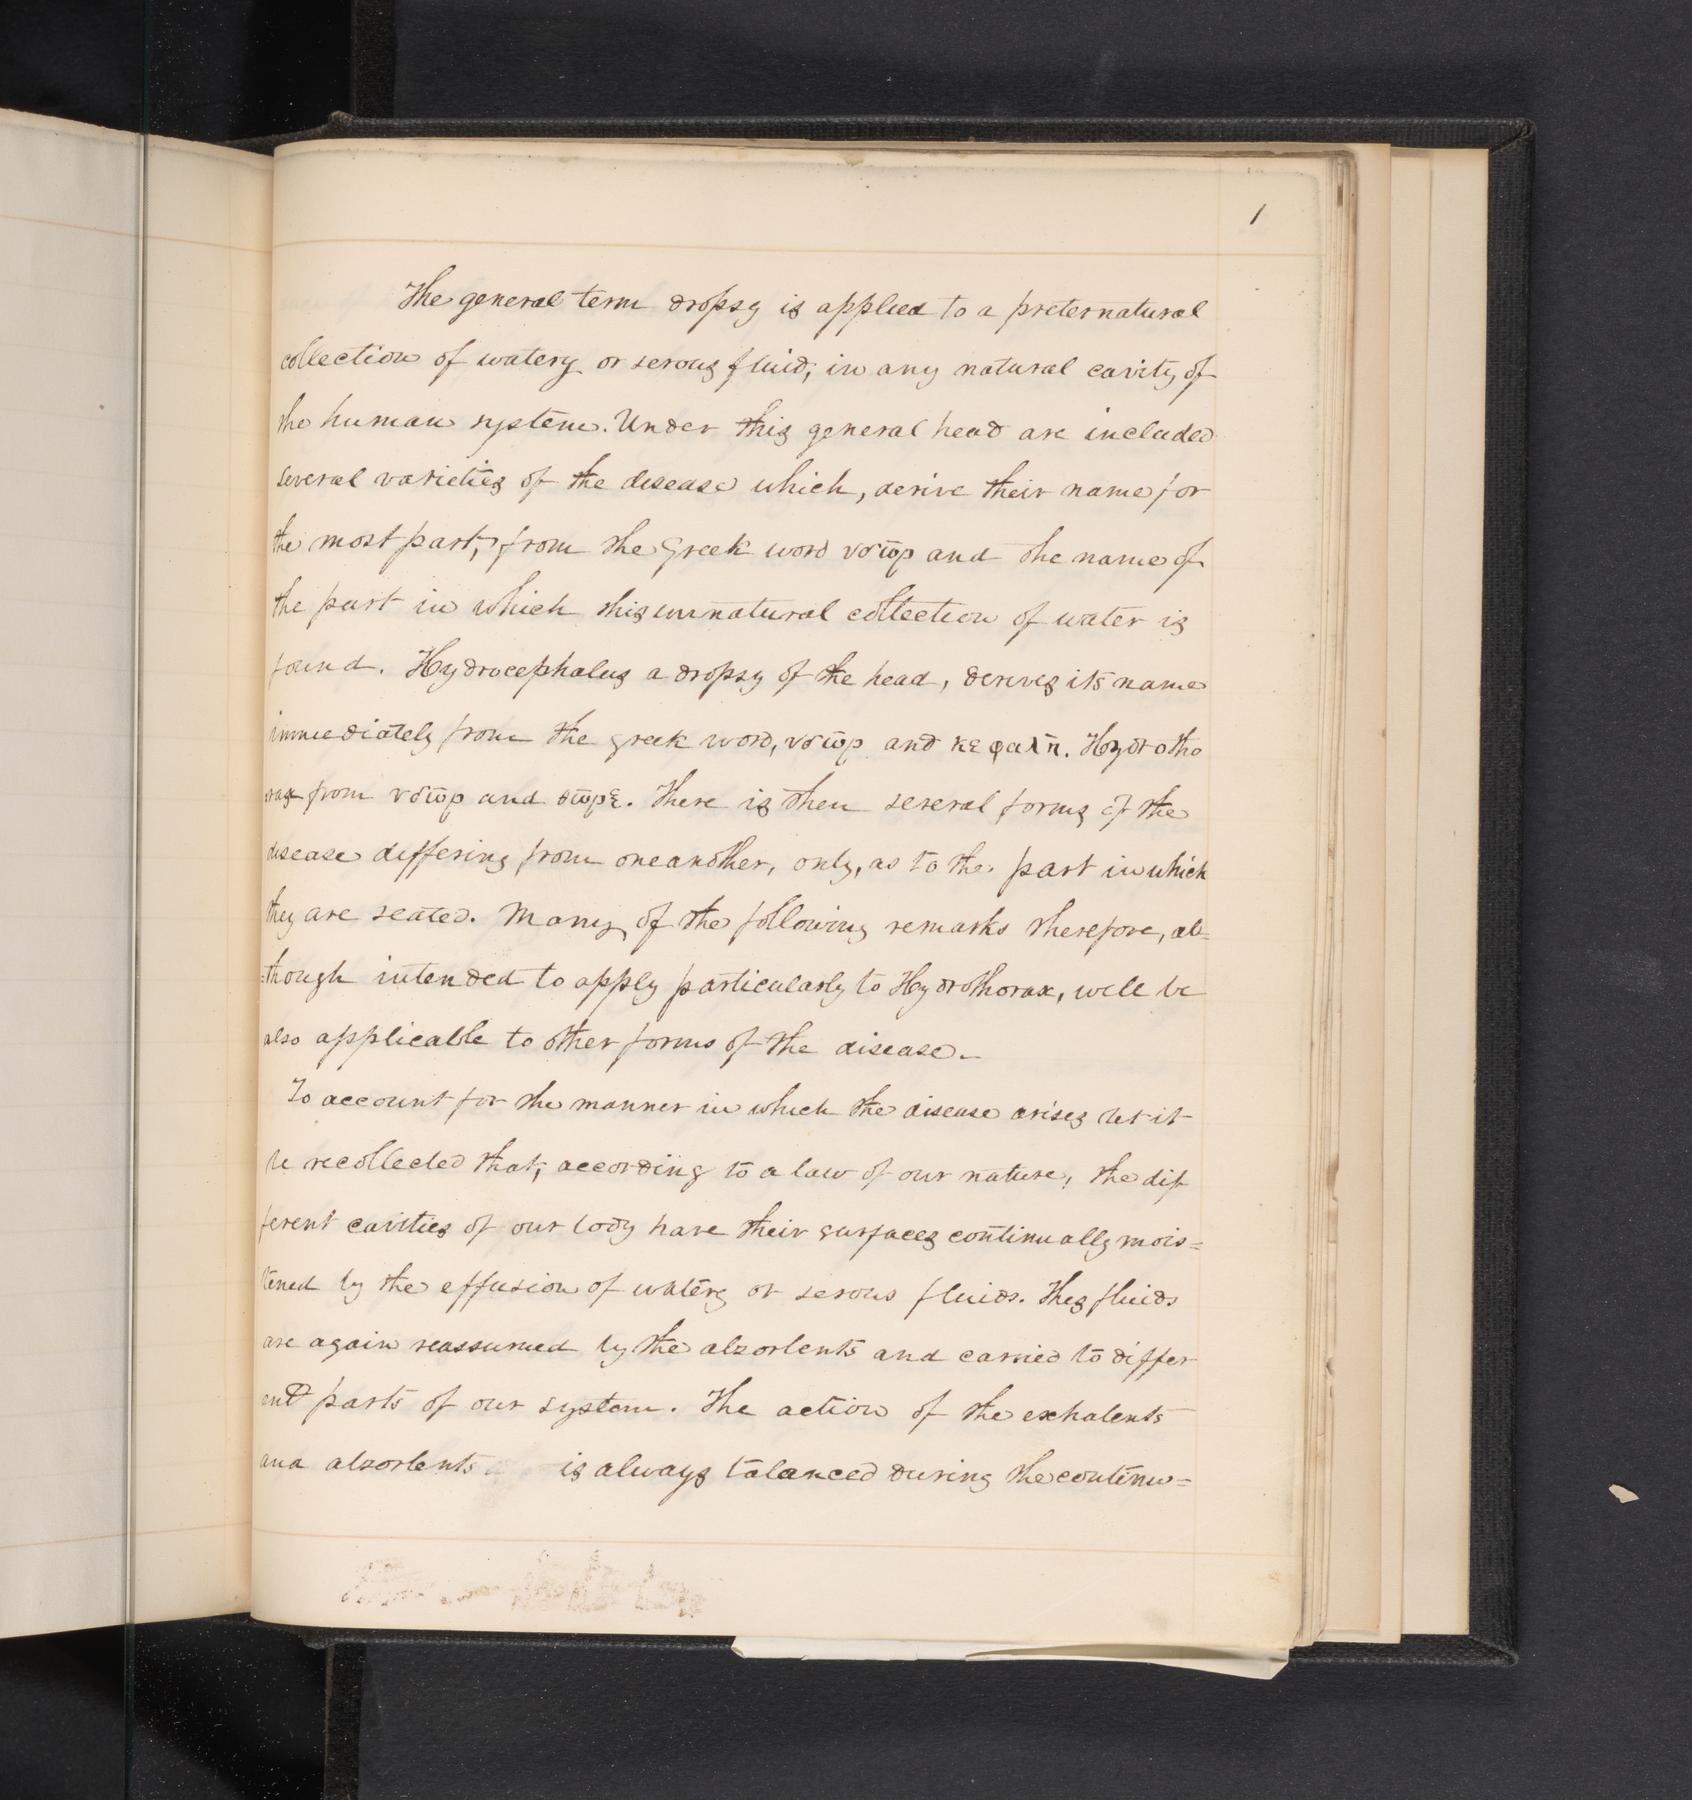 1
The general term dropsy is applied to a preternatural
collection of watery or serous fluid, in any natural cavity of
the human system. Under this general head are included
several varieties of the disease which, derive their name for
the most part, from the Greek word υδωρ and the name of
the part in which this unnatural collection of water is
found. Hydrocephalus a dropsy of the head, derives its name
immediately from the greek word, υδωρ and κεφαλη. Hydrotho
rax from υδωρ and There is then several forms of the
disease differing from one another, only, as to the part in which
they are seated. Many of the following remarks therefore, al=
=though intended to apply particularly to Hydrothorax, will be
also applicable to other forms of the disease.
To account for the manner in which the disease arises let it
be recollected that, according to a law of our nature, the dif
ferent cavities of our body have their surfaces continually mois=
tened by the effusion of watery or serous fluids. Thes fluids
are again reassumed by the absorbents and carried to differ
ent parts of our system. The action of the exhalents
and absorbents is always balanced during the continu=